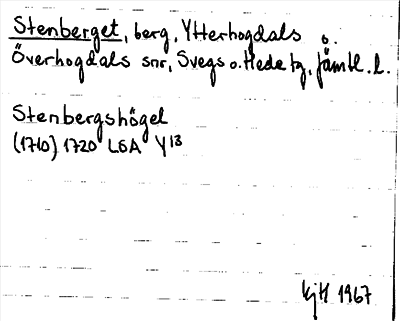 Stenberget, berg, Ytterhogdals o.
Överhogdals snr, Svegs o. Hede tg, Jämtl. l.
Stenbergshögel
(1710) 1720 LSA Y13
KjH 1967